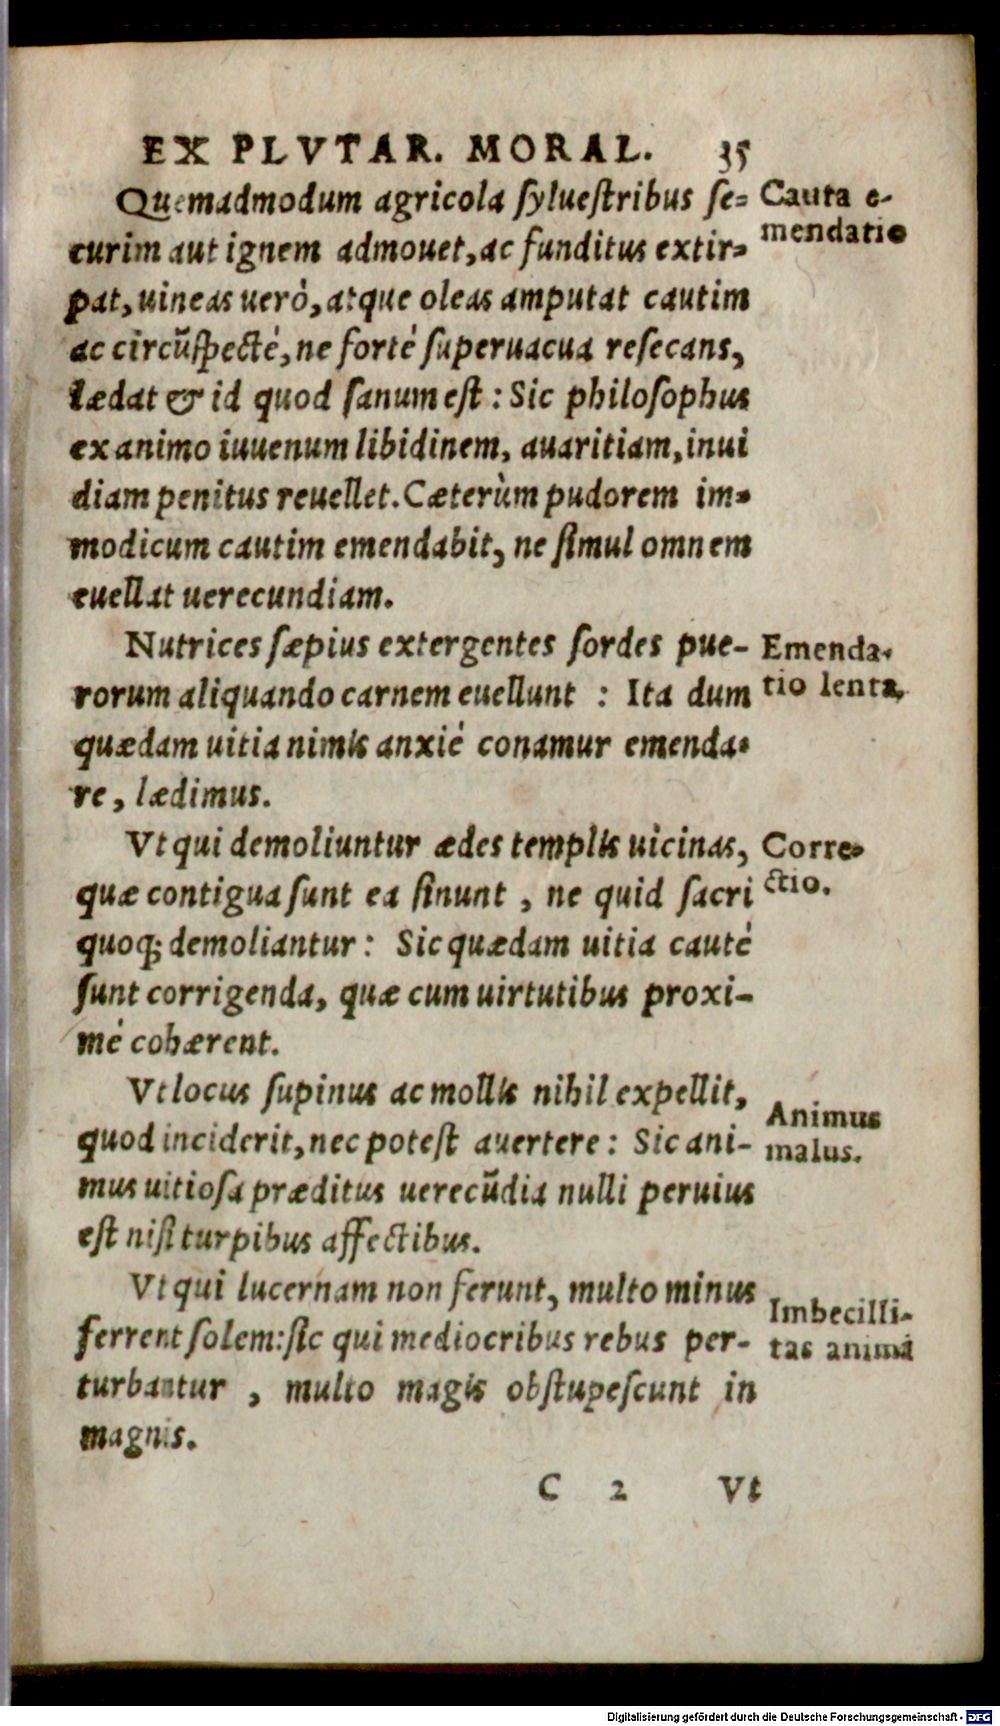 EX PLVTAR. MORAL. 35
Quemadmodum agricola ſylueſtribus ſe=
curim aut ignem admouet, ac funditus extir=
pat, uineas uerò, atque oleas amputat cautim
ac circũſpectè, ne fortè ſuperuacua reſecans,
lædat & id quod ſanum eſt : Sic philoſophus
ex animo iuuenum libidinem, auaritiam, inui
diam penitus reuellet. Cæterùm pudorem im=
modicum cautim emendabit, ne ſimul omnem
euellat uerecundiam.
Cauta e-
mendatio
Nutrices ſæpius extergentes ſordes pue-
rorum aliquando carnem euellunt : Ita dum
quædam uitia nimis anxiè conamur emenda=
re, lædimus.
Emenda-
tio lenta,
Vt qui demoliuntur ædes templis uicinas,
quæ contigua ſunt ea ſinunt, ne quid ſacri
quoq; demoliantur : Sic quædam uitia cautè
ſunt corrigenda, quæ cum uirtutibus proxi-
mè cohærent.
Corre=
ctio.
Vt locus ſupinus ac mollis nihil expellit,
quod inciderit, nec poteſt auertere : Sic ani-
mus uitioſa præditus uerecũdia nulli peruius
eſt niſi turpibus affectibus.
Animus
malus.
Vt qui lucernam non ferunt, multo minus
ferrent ſolem: ſic qui mediocribus rebus per-
turbantur, multo magis obſtupeſcunt in
magnis.
Imbecilli-
tas animi
C 2 Vt
Digitalisierung gefördert durch die Deutsche Forschungsgemeinschaft - DFG